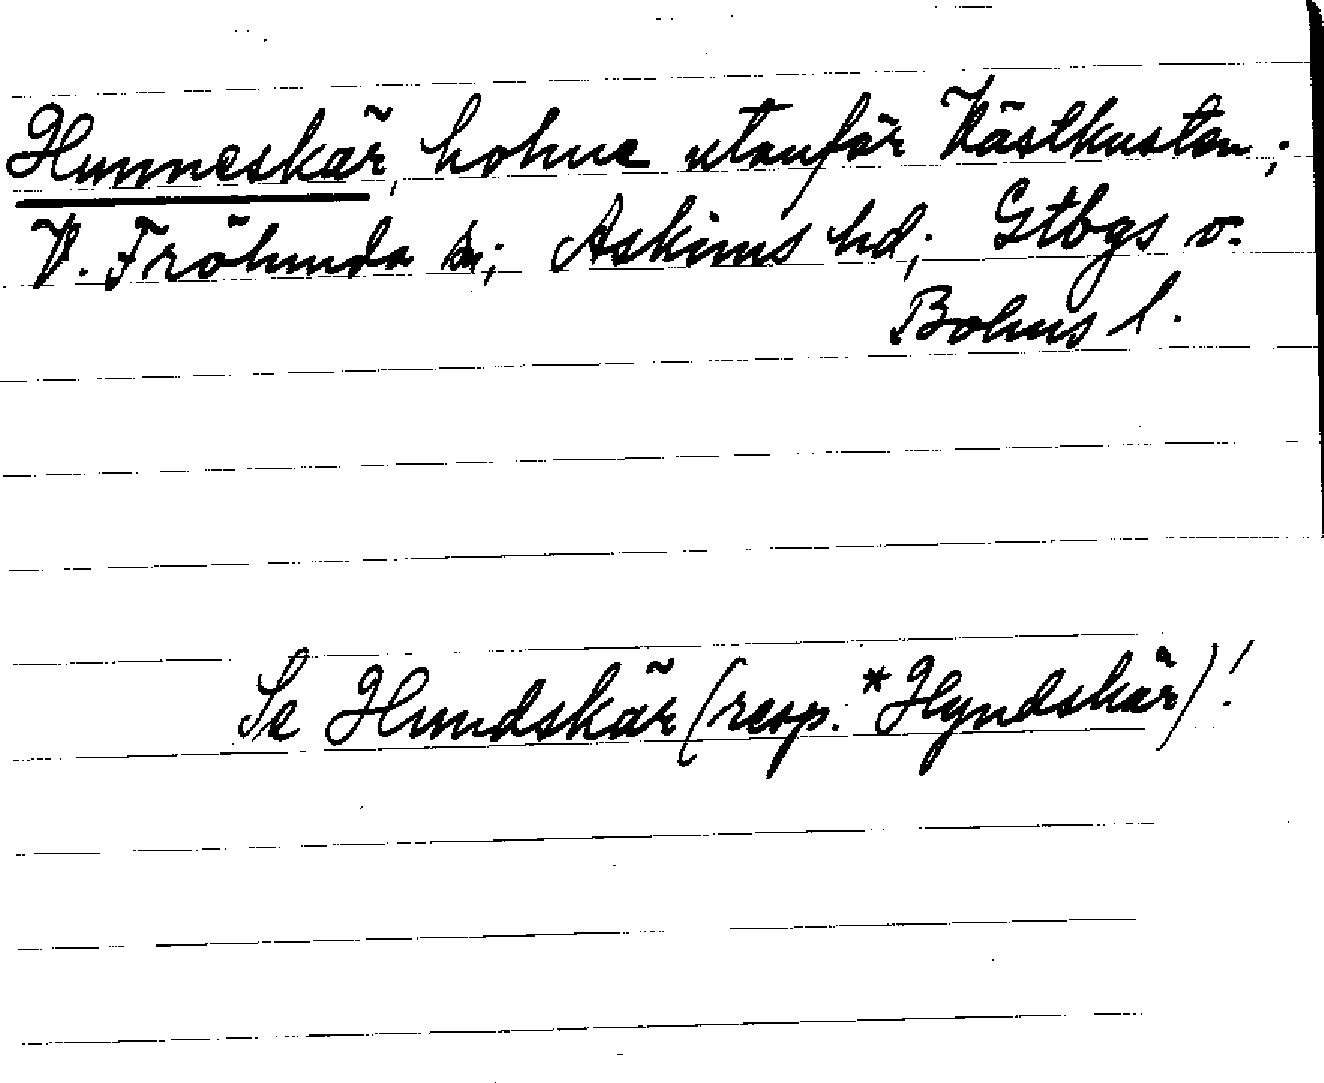 Hunneskär, holme utanför Västkusten;
V. Frölunda sn; Askims hd; Gtbgs o.
Bohus l.
Se Hundskär (resp. *Hyndskär)!